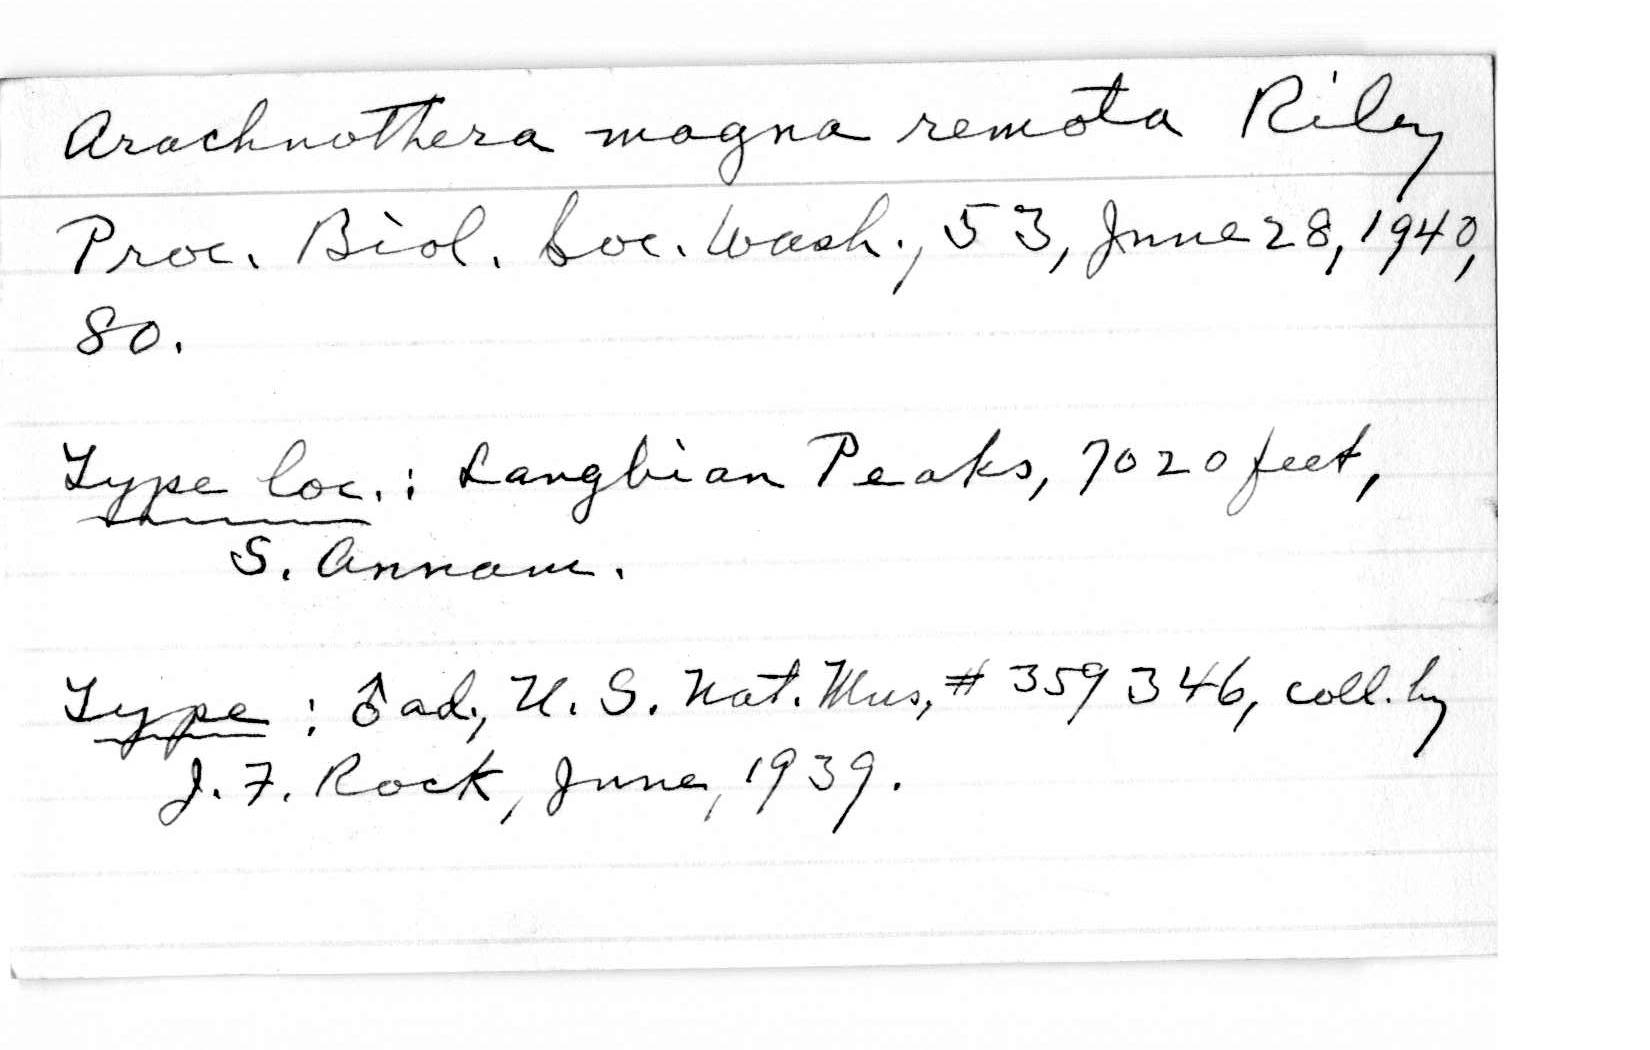 Arachnothera magna remota Riley
Proc. Biol. Soc. Wash., 53, June 28, 1940,
80.
Type loc.: Langbian Peaks, 7020 feet,
S. Annam.
Type: ♂ ad., U. S. Nat. Mus, # 359346, coll. by
J. F. Rock, June, 1939.